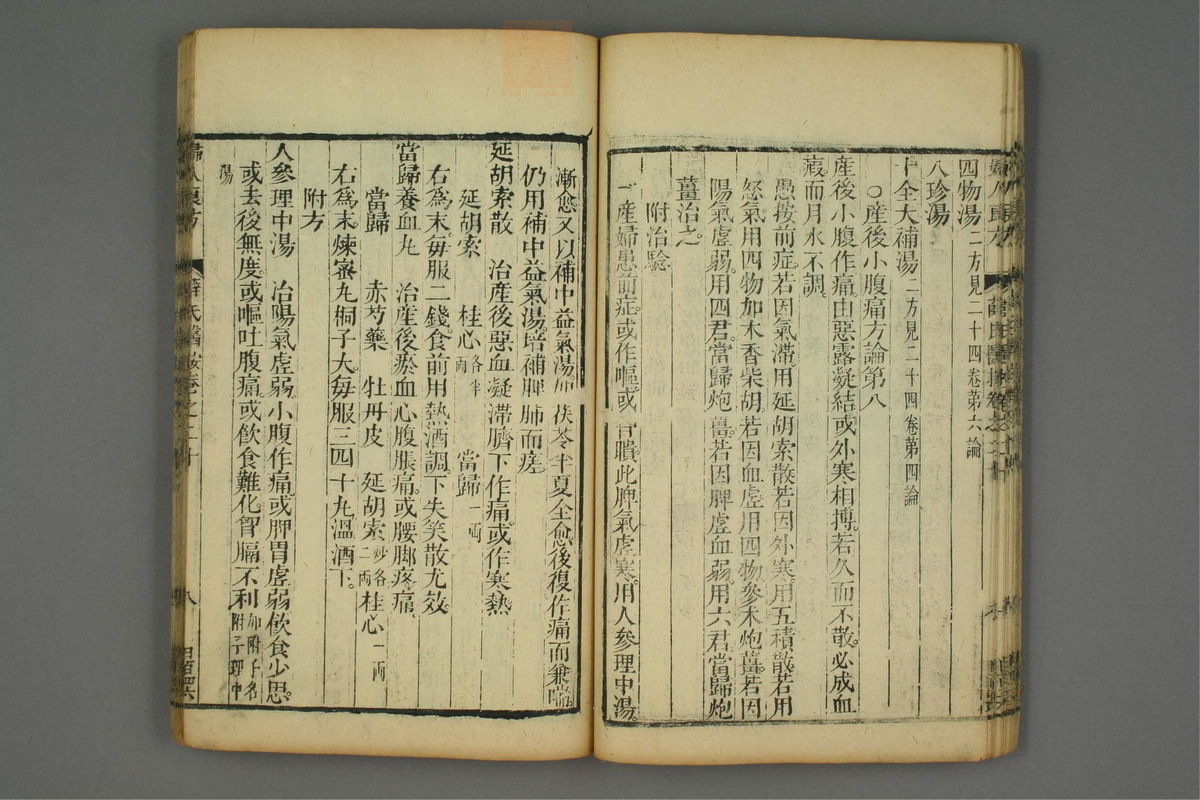 四物湯二方見二十四卷第六論
八珍湯
十全大補湯二方見二十四卷第四論
○產後小腹痛方論第八
產後小腹作痛由惡露凝結或外寒相搏若久而不散必成血
瘕而月水不調
愚按前症若因氣滯用延胡索散若因外寒用五積散若用
怒氣用四物加木香柴胡若因血虛用四物參朮炮薑若因
陽氣虛弱用四君當歸炮薑若因脾虛血弱用六君當歸炮
薑治之
附治驗
一產婦患前症或作嘔或昏聵此脾氣虛寒用人參理中湯
漸愈又以補中益氣湯加茯苓半夏全愈後復作痛而兼喘
仍用補中益氣湯培補脾肺而痊
延胡索散 治產後惡血凝滯臍下作痛或作寒熱
延胡索 桂心各半兩 當歸一兩
右為末每服二錢食前用熱酒調下失笑散尤效
當歸養血丸 治產後瘀血心腹脹痛或腰脚疼痛
當歸 赤芍藥 牡丹皮 延胡索炒各二兩 桂心一兩
右為末煉蜜丸桐子大每服三四十丸溫酒下
附方
人參理中湯 治陽氣虛弱小腹作痛或脾胃虛弱飲食少思
或去後無度或嘔吐腹痛或飲食難化胷膈不利如附子名附子理中
湯
婦人良方 薛氏醫按卷之二十 八